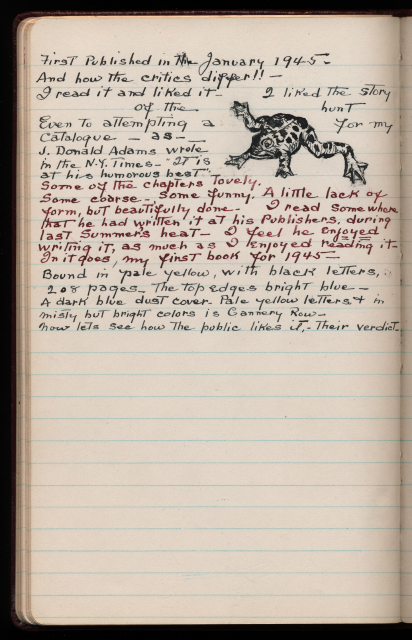 First Published in the January 1945-
And how the critics differ!! -
I read it and liked it - I liked the story
of the hunt
Even to attempting a for my
Catalogue - as -
J. Donald Adams wrote
in the N.Y. Times - "It is
at his humorous best"
Some of the chapters lovely.
Some coarse - some funny. A little lack of
form, but beautifully done - I read somewhere
that he had written it at his Publishers, during
last Summer's heat - I feel he enjoyed
writing it, as much as I enjoyed reading it -
In it goes, my first book for 1945 -
Bound in pale yellow, with black letters,
208 pages - The top edges bright blue -
A dark blue dust cover - Pale yellow letters & in
misty but bright colors is Cannery Row -
now lets see how the public likes it, - Their verdict -